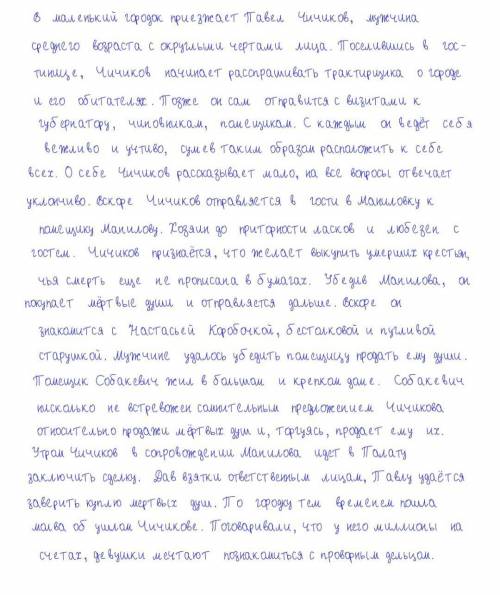 В маленький городок приезжает Павел Чичиков, мужчина
среднего возраста с округлыми чертами лица. Поселившись в гос-
тинице, Чичиков начинает расспрашивать трактирщика о городе
и его обитателях. Позже он сам отправится с визитами к
губернатору, чиновникам, помещикам. С каждым он ведёт себя
вежливо и учтиво, сумев таким образом расположить к себе
всех. О себе Чичиков рассказывает мало, на все вопросы отвечает
уклончиво. Вскоре Чичиков отправляется в гости в Маниловку к
помещику Манилову. Хозяин до приторности ласков и любезен с
гостем. Чичиков признаётся, что желает выкупить умерших крестьян,
чья смерть еще не прописана в бумагах. Убедив Манилова, он
покупает мёртвые души и отправляется дальше. Вскоре он
знакомится с Настасьей Коробочкой, бестолковой и пугливой
старушкой. Мужчине удалось убедить помещицу продать ему души.
Помещик Собакевич жил в большом и крепком доме. Собакевич
нисколько не встревожен сомнительным предложением Чичикова
относительно продажи мёртвых душ и, торгуясь, продает ему их.
Утром Чичиков в сопровождении Манилова идет в Палату
заключить сделку. Дав взятки ответственным лицам, Павлу удаётся
заверить куплю мертвых душ. По городку тем временем пошла
молва об ушлом Чичикове. Поговаривали, что у него миллионы на
счетах, девушки мечтают познакомиться с проворным дельцом.